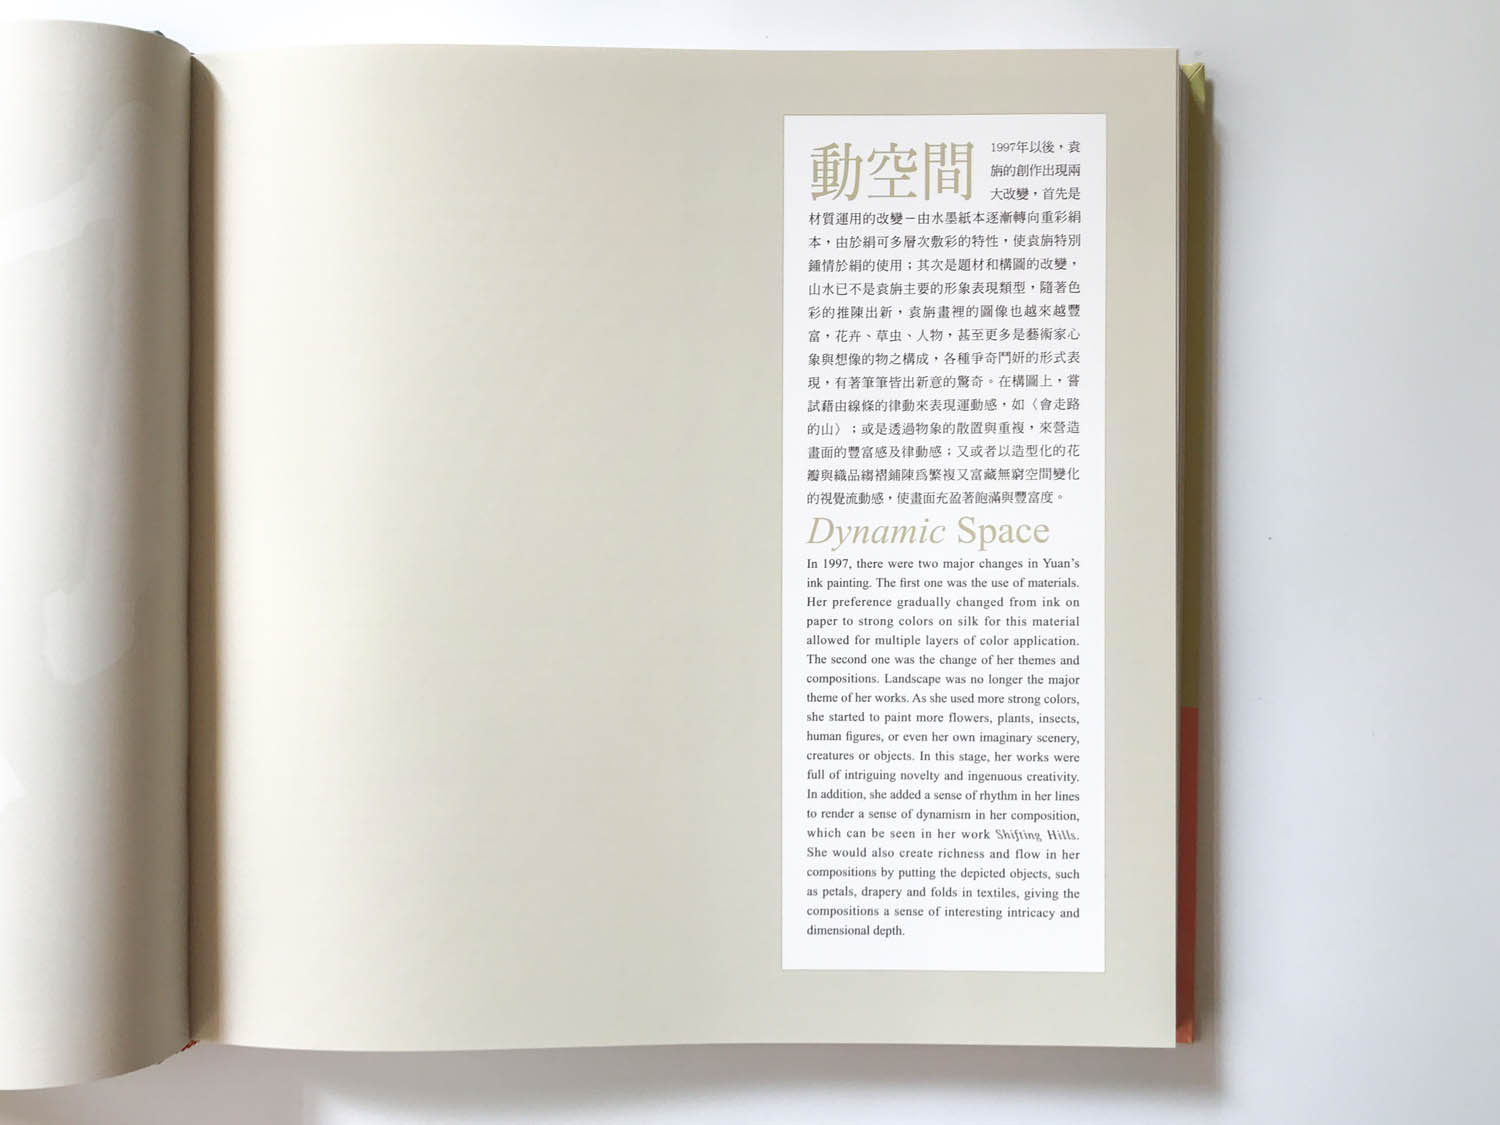 動空間
1997年以後，袁
旃的創作出現兩
大改變，首先是
材質運用的改變－由水墨紙本逐漸轉向重彩絹
本，由於絹可多層次敷彩的特性，使袁旃特別
鍾情於絹的使用；其次是題材和構圖的改變，
山水已不是袁旃主要的形象表現類型，隨著色
彩的推陳出新，袁旃畫裡的圖像也越來越豐
富，花卉、草虫、人物，甚至更多是藝術家心
象與想像的物之構成，各種爭奇鬥妍的形式表
現，有著筆筆皆出新意的驚奇。在構圖上，嘗
試藉由線條的律動來表現運動感，如〈會走路
的山〉；或是透過物象的散置與重複，來營造
畫面的豐富感及律動感；又或者以造型化的花
瓣與織品縐褶鋪陳為繁複又富藏無窮空間變化
的視覺流動感，使畫面充盈著飽滿與豐富度。
Dynamic Space
In 1997, there were two major changes in Yuan's
ink painting. The first one was the use of materials.
Her preference gradually changed from ink on
paper to strong colors on silk for this material
allowed for multiple layers of color application.
The second one was the change of her themes and
compositions. Landscape was no longer the major
theme of her works. As she used more strong colors,
she started to paint more flowers, plants, insects,
human figures, or even her own imaginary scenery,
creatures or objects. In this stage, her works were
full of intriguing novelty and ingenuous creativity.
In addition, she added a sense of rhythm in her lines
to render a sense of dynamism in her composition,
which can be seen in her work Shifting Hills.
She would also create richness and flow in her
compositions by putting the depicted objects, such
as petals, drapery and folds in textiles, giving the
compositions a sense of interesting intricacy and
dimensional depth.